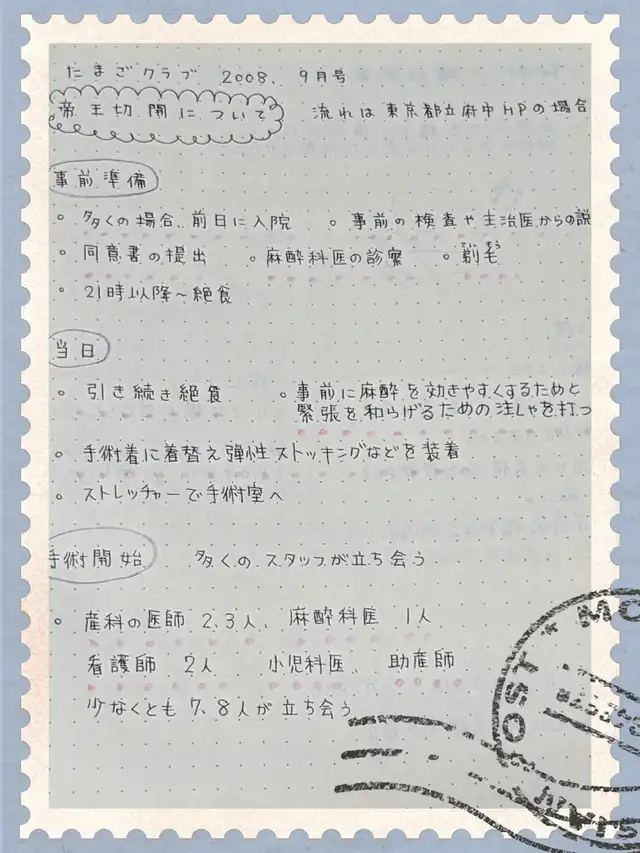 たまごクラブ 2008. 9月号
帝王切開について 流れは東京都立府中HPの場合
事前準備
。多くの場合、前日に入院 。事前の検査や主治医からの説
。同意書の提出 。麻酔科医の診察 。剃毛
ていもう
。21時以降~絶食
当日
。引き続き絶食 。事前に麻酔を効きやすくするためと
緊張を和らげるための注しゃを打つ
。手術着に着替え弾性ストッキングなどを装着
。ストレッチャーで手術室へ
手術開始 多くのスタッフが立ち会う
。産科の医師 2、3人、麻酔科医 1人
看護師 2人 小児科医、助産師
少なくとも7、8人が立ち会う